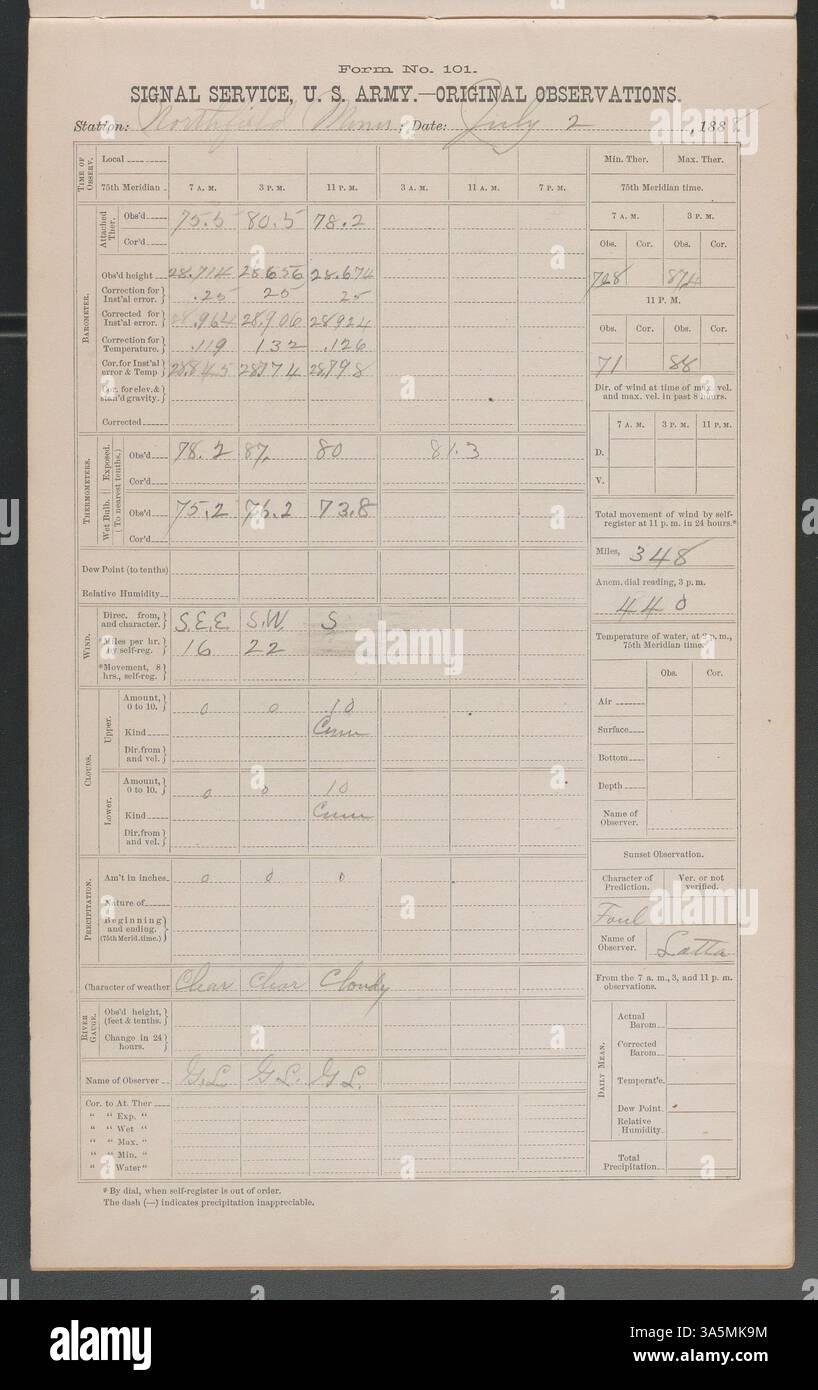 Form No. 101.
SIGNAL SERVICE, U. S. ARMY.—ORIGINAL OBSERVATIONS.
Station: Northfield Minn ; Date: July 2, 188
TIME OF OBSERV.
Local
75th Meridian 7 A. M. 3 P. M. 11 P. M. 3 A. M. 11 A. M. 7 P. M.
BAROMETER.
Attached Ther.
Obs'd 75.5 80.5 78.2
Cor'd
Obs'd height 28.714 28.656 28.674
Correction for Inst'al error. .25 25 25
Corrected for Inst'al error. 28.964 28.906 28924
Correction for Temperature. .119 132 .126
Cor. for Inst'al error & Temp 28.845 28.774 28.798
Cor. for elev. & stan'd gravity.
Corrected
THERMOMETERS.
Exposed. Wet Bulb. (To nearest tenths.)
Obs'd 78.2 87. 80 81.3
Cor'd
Obs'd 75.2 76.2 73.8
Cor'd
Dew Point (to tenths)
Relative Humidity
WIND.
Direc. from, and character. S.E.E S.W. S
*Miles per hr. by self-reg. 16 22
*Movement, 8 hrs., self-reg.
CLOUDS.
Upper.
Amount, 0 to 10. 0 0 10
Kind Cum
Dir. from and vel.
Lower.
Amount, 0 to 10. 0 0 10
Kind Cum
Dir. from and vel.
PRECIPITATION.
Am't in inches. 0 0 0
Nature of
Beginning and ending. (75th Merid. time.)
Character of weather Clear Clear Cloudy
RIVER GAUGE.
Obs'd height, (feet & tenths.)
Change in 24 hours.
Name of Observer G.L G.L. G L.
Cor. to At. Ther
" " Exp. "
" " Wet "
" " Max. "
" " Min. "
" " Water "
* By dial, when self-register is out of order.
The dash (—) indicates precipitation inappreciable.
Min. Ther. Max. Ther.
75th Meridian time.
7 A. M. 3 P. M.
Obs. Cor. Obs. Cor.
11 P. M.
Obs. Cor. Obs. Cor.
71 88
Dir. of wind at time of max. vel. and max. vel. in past 8 hours.
7 A. M. 3 P. M. 11 P. M.
D.
V.
Total movement of wind by self-register at 11 p. m. in 24 hours.*
Miles, 348
Anem. dial reading, 3 p. m.
440
Temperature of water, at 3 p. m., 75th Meridian time.
Obs. Cor.
Air
Surface
Bottom
Depth
Name of Observer.
Sunset Observation.
Character of Prediction. Ver. or not verified.
Foul
Name of Observer. Latta
From the 7 a. m., 3, and 11 p. m. observations.
DAILY MEAN.
Actual Barom
Corrected Barom
Temperat'e
Dew Point
Relative Humidity
Total Precipitation
alamy
A5MK9M
www.alamy.com